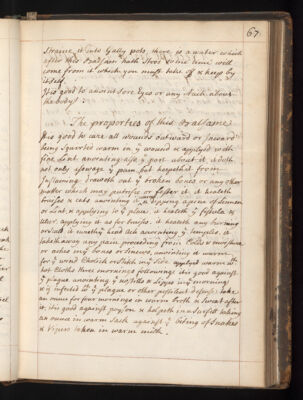 67.
Straine it into Gally pots, there is a water which
after this Balsam hath stood some time will
come from it which you must take of & keep by
it self.
It is good to anoint sore Eyes or any Itch about
the body.
The properties of this Balsame
It is good to cure all wounds outward or Inward
being Squirted warm in y wound & applyed with
fine Lint anoynting also y part about it, it doth
not only asswage y pain, but keepeth it from
Inflaming: draweth out y broken bones or any other
matter which may putrifie or fester it. it healeth
bruises & cuts anointing it & dipping a piece of Linnen
or Lint & applying to y place: it healeth y fistula &
Ulcer applying it as for bruises. it healeth any burning
or scald it cureth y head Ach anointing y temples. it
taketh away any pain proceeding from Colds & moisture
or aches in y bones or sinews, anointing it warm.
for y wind Cholick or Stitch in y Side apply it warm with
hot Cloths three mornings following: it is good against
y plague anointing y nostrills & Lipps in y morning
if y infected with y plague or other pestilent disease take
an ounce for four mornings in warm Broth & sweat after
it; it is good against poyson & helpeth in a Surfett taking
an ounce in warm Sack against y biting of Snakes
& Vipers taken in warm milk.